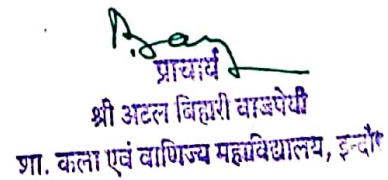 प्राचार्य
श्री अटल बिहारी वाजपेयी
शा. कला एवं वाणिज्य महाविद्यालय, इन्दौर